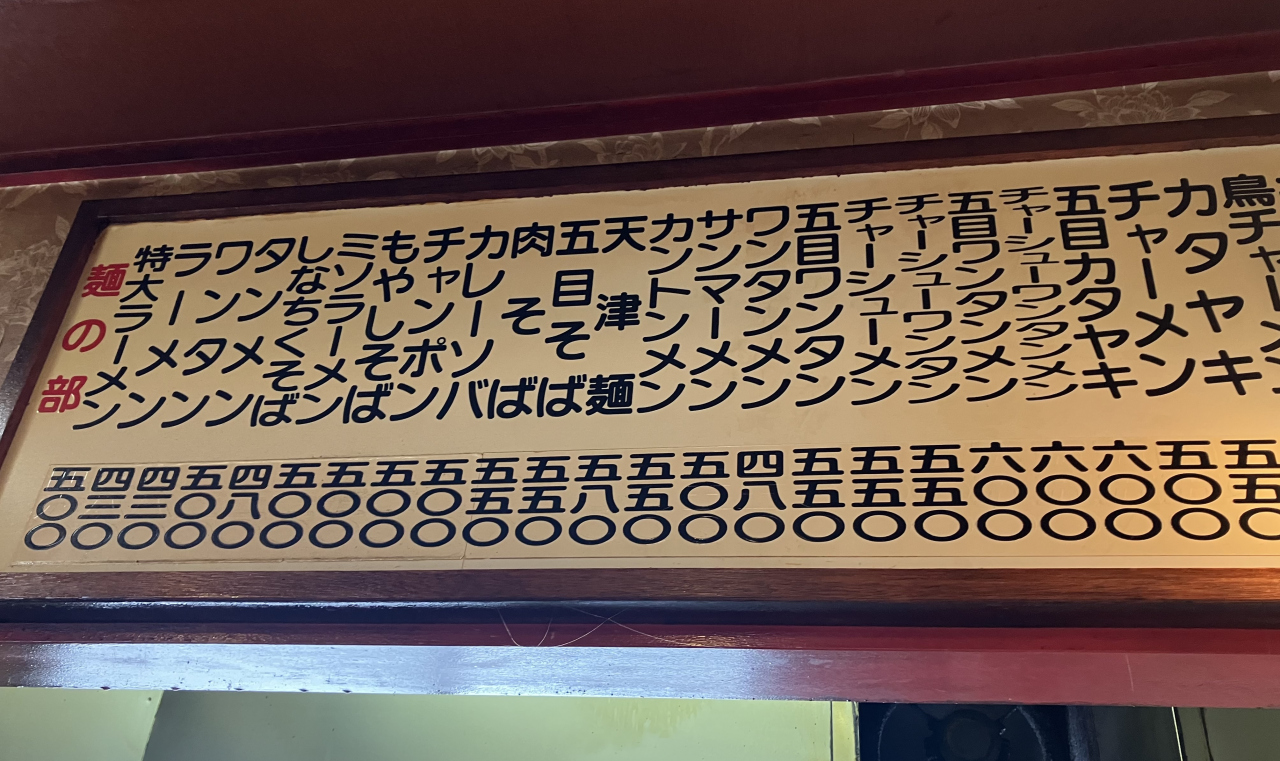 麺の部
特大ラーメン 五〇〇
ラーメン 四三〇
ワンタン 四三〇
タンメン 五〇〇
しなちくそば 四八〇
ミソラーメン 五〇〇
もやしそば 五〇〇
チャンポン 五〇〇
カレーソバ 五〇〇
肉そば 五五〇
五目そば 五五〇
天津麺 五八〇
カントンメン 五五〇
サンマーメン 五〇〇
ワンタンメン 四八〇
五目ワンタン 五五〇
チャーシューメン 五五〇
チャーシューワンタン 五五〇
五目ワンタンメン 六〇〇
チャーシューワンタンメン 六〇〇
五目カタヤキ 六〇〇
チャーメン 五〇〇
カタヤキ 五五〇
鳥チャーメン